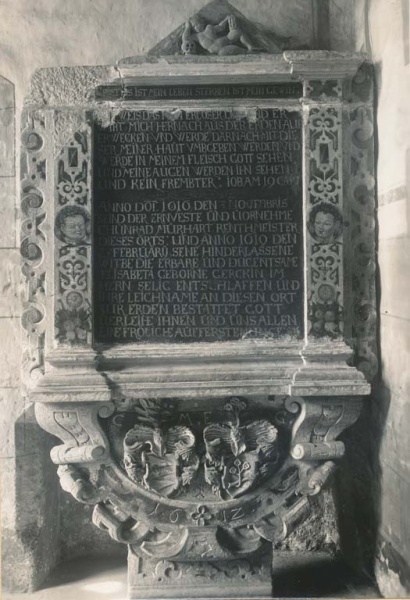 CHRISTVS IST MEIN LEBEN STERBEN IST MEIN GEWIN
WEIS DAS MEIN ERLOSER LEBET VND ER
WIRT MICH HERNACH AUS DER ERDEN AUF
ERWECKEN VND WERDE DARNACH MIT DIE
SER MEINER HAUT VMBGEBEN WERDEN VND
WERDE IN MEINEM FLEISCH GOTT SEHEN
UND MEINE AUGEN WERDEN IHN SEHEN
UND KEIN FREMBTER. IOB AM 19 CAP
ANNO DOI 1616 DEN NOVEMBRIS
UND DER ERNVESTE UND VORNEHME
CHUNRAD MURHART RENTHMEISTER
DIESES ORTS UND ANNO 1619 DEN
FEBRUARII SENE HINDERLASSENE
WITBE DIE ERBARE UND TUGENTSAME
ELISABETA GEBORNE GERCKIN IM
HERN SELIG ENTSCHLAFFEN UND
IHRE LEICHNAME AN DIESEN ORT
ZUR ERDEN BESTATTET GOTT
VERLEIHE IHNEN UND UNS ALLEN
EINE FROLICHE AUFFERSTEHUNG
1612